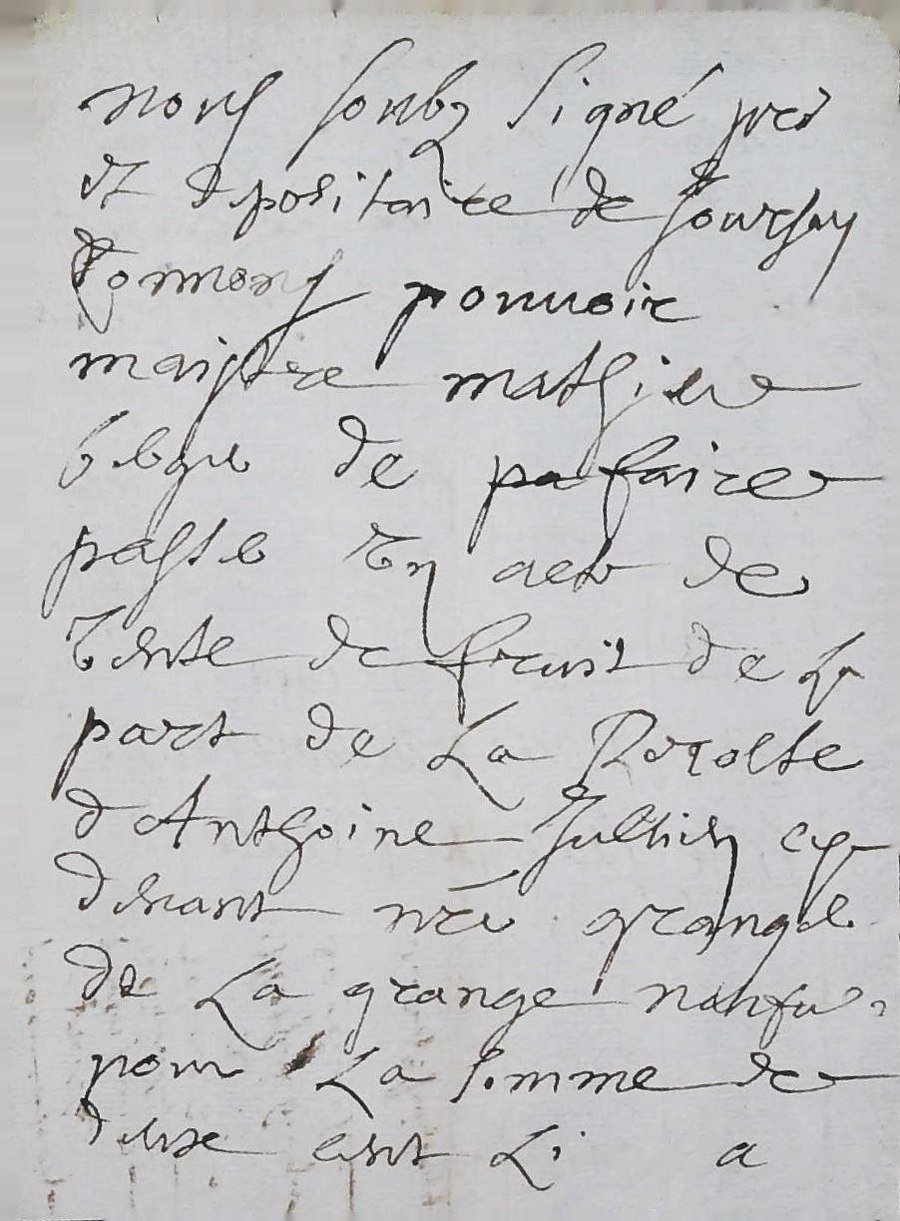 nous soubz signé
et depositaire de Joursay
donnons pouvoir
maistre mathieu
de faire
passe un acte de
vente de fruit de la
part de La Recolte
d'Anthoine Jullien cy
devant nre grange
de La grange neufve
pour La somme de
cent Li a